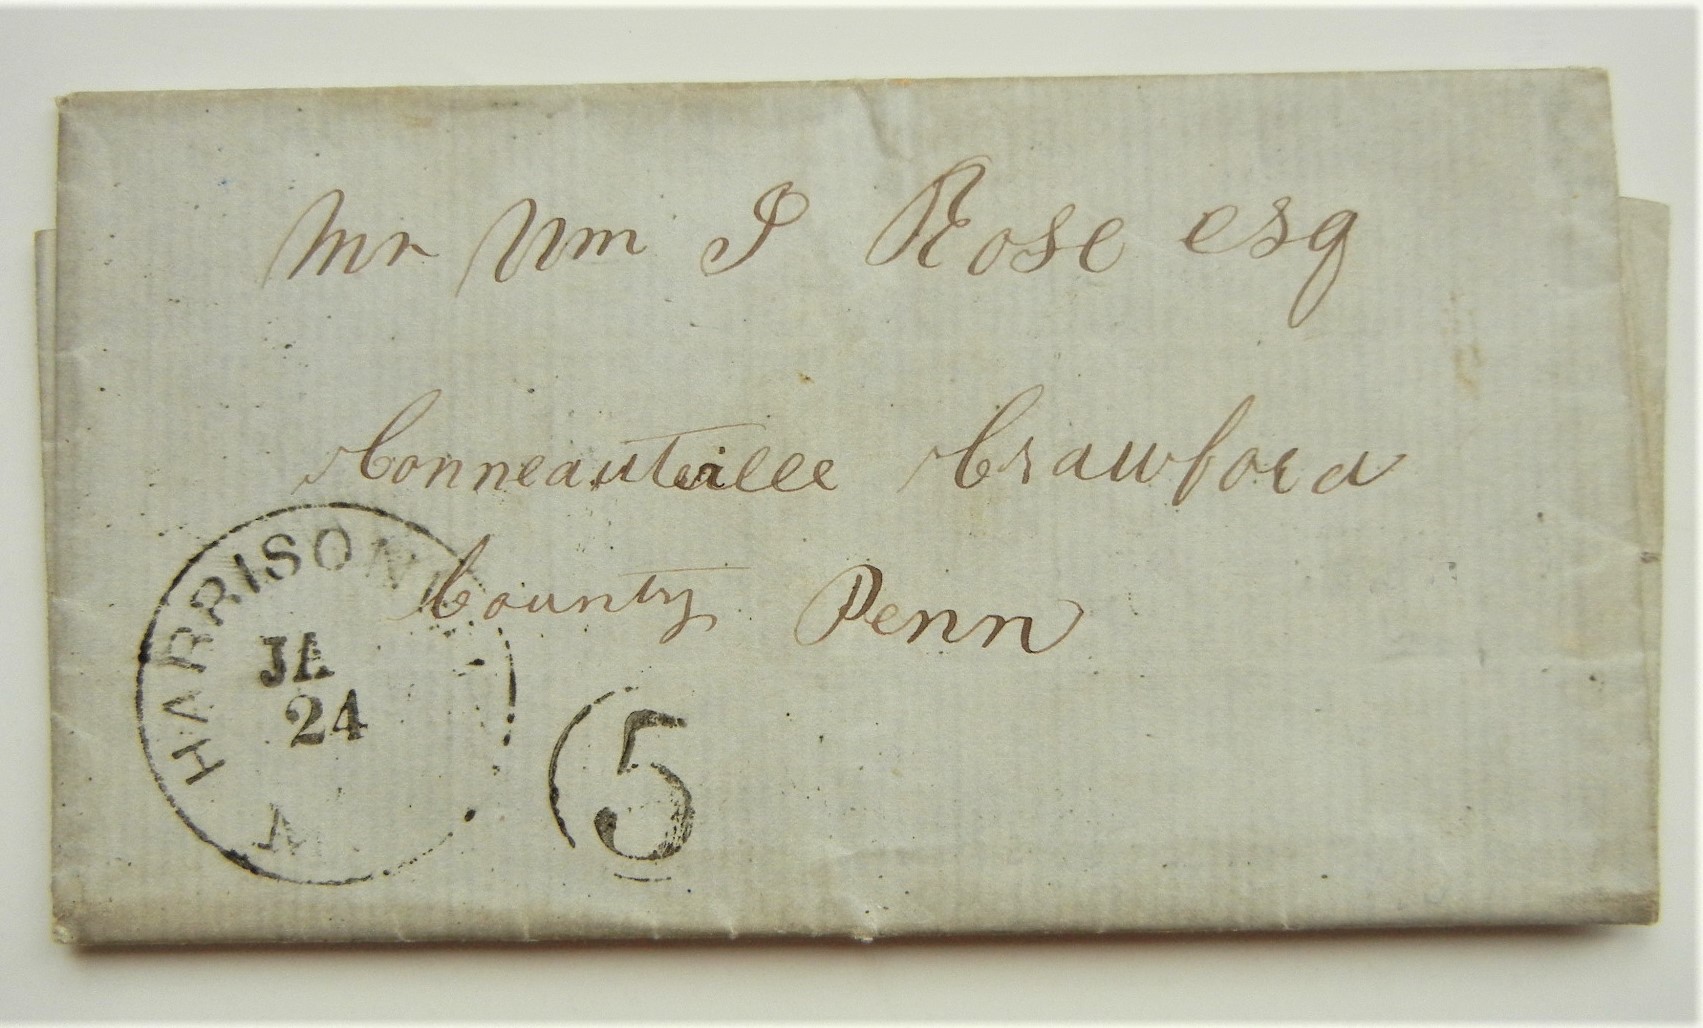 Mr Wm I Rose esq
Conneautville Crawford
County Penn
HARRISON
JA
24
5